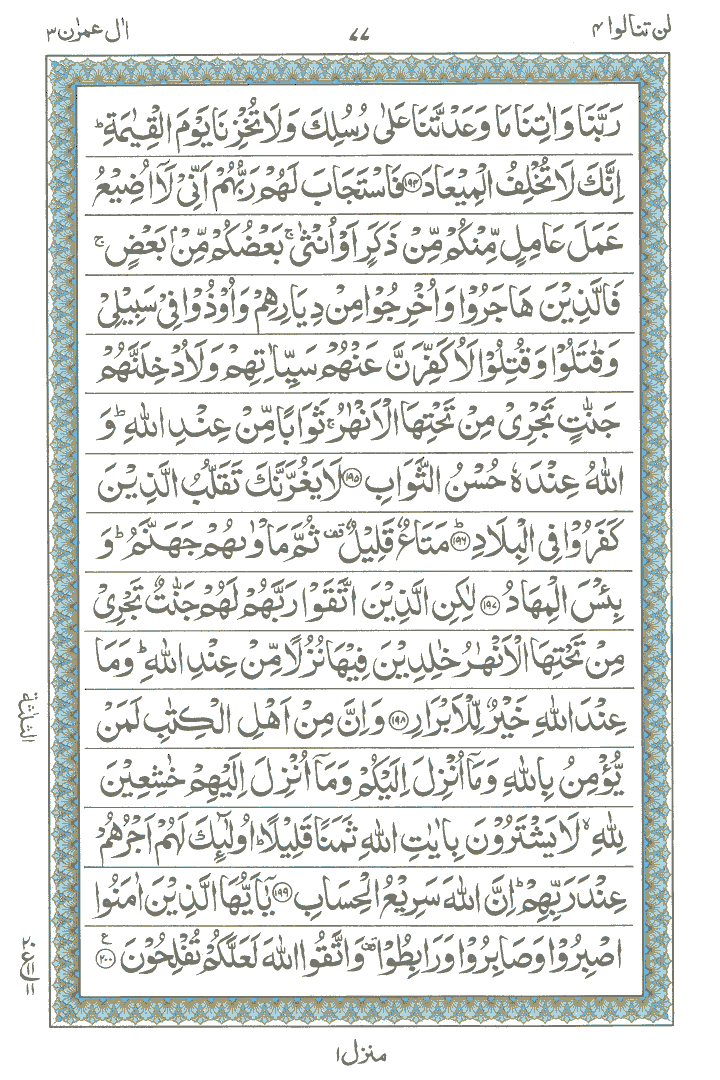 لن تنالوا ۴
۷۷
اٰل عمرٰن ۳
رَبَّنَا وَاٰتِنَا مَا وَعَدْتَّنَا عَلٰى رُسُلِكَ وَلَا تُخْزِنَا يَوْمَ الْقِيٰمَةِ ؕ
اِنَّكَ لَا تُخْلِفُ الْمِيْعَادَ ﴿۱۹۴﴾ فَاسْتَجَابَ لَهُمْ رَبُّهُمْ اَنِّىْ لَاۤ اُضِيْعُ
عَمَلَ عَامِلٍ مِّنْكُمْ مِّنْ ذَكَرٍ اَوْ اُنْثٰى ۚ بَعْضُكُمْ مِّنْۢ بَعْضٍ ۚ
فَالَّذِيْنَ هَاجَرُوْا وَاُخْرِجُوْا مِنْ دِيَارِهِمْ وَاُوْذُوْا فِىْ سَبِيْلِىْ
وَقٰتَلُوْا وَقُتِلُوْا لَاُكَفِّرَنَّ عَنْهُمْ سَيِّاٰتِهِمْ وَلَاُدْخِلَنَّهُمْ
جَنّٰتٍ تَجْرِىْ مِنْ تَحْتِهَا الْاَنْهٰرُ ۚ ثَوَابًا مِّنْ عِنْدِ اللّٰهِ ؕ وَ
اللّٰهُ عِنْدَهٗ حُسْنُ الثَّوَابِ ﴿۱۹۵﴾ لَا يَغُرَّنَّكَ تَقَلُّبُ الَّذِيْنَ
كَفَرُوْا فِى الْبِلَادِ ؕ﴿۱۹۶﴾ مَتَاعٌ قَلِيْلٌ قف ثُمَّ مَاْوٰىهُمْ جَهَنَّمُ ؕ وَ
بِئْسَ الْمِهَادُ ﴿۱۹۷﴾ لٰكِنِ الَّذِيْنَ اتَّقَوْا رَبَّهُمْ لَهُمْ جَنّٰتٌ تَجْرِىْ
مِنْ تَحْتِهَا الْاَنْهٰرُ خٰلِدِيْنَ فِيْهَا نُزُلًا مِّنْ عِنْدِ اللّٰهِ ؕ وَمَا
عِنْدَ اللّٰهِ خَيْرٌ لِّلْاَبْرَارِ ﴿۱۹۸﴾ وَاِنَّ مِنْ اَهْلِ الْكِتٰبِ لَمَنْ
يُّؤْمِنُ بِاللّٰهِ وَمَاۤ اُنْزِلَ اِلَيْكُمْ وَمَاۤ اُنْزِلَ اِلَيْهِمْ خٰشِعِيْنَ
لِلّٰهِ ۙ لَا يَشْتَرُوْنَ بِاٰيٰتِ اللّٰهِ ثَمَنًا قَلِيْلًا ؕ اُولٰٓئِكَ لَهُمْ اَجْرُهُمْ
عِنْدَ رَبِّهِمْ ؕ اِنَّ اللّٰهَ سَرِيْعُ الْحِسَابِ ﴿۱۹۹﴾ يٰۤاَيُّهَا الَّذِيْنَ اٰمَنُوا
اصْبِرُوْا وَصَابِرُوْا وَرَابِطُوْا قف وَاتَّقُوا اللّٰهَ لَعَلَّكُمْ تُفْلِحُوْنَ ﴿۲۰۰﴾ ع
الثلثة
۲۰ ع ۱۱ ۱۱
منزل ۱